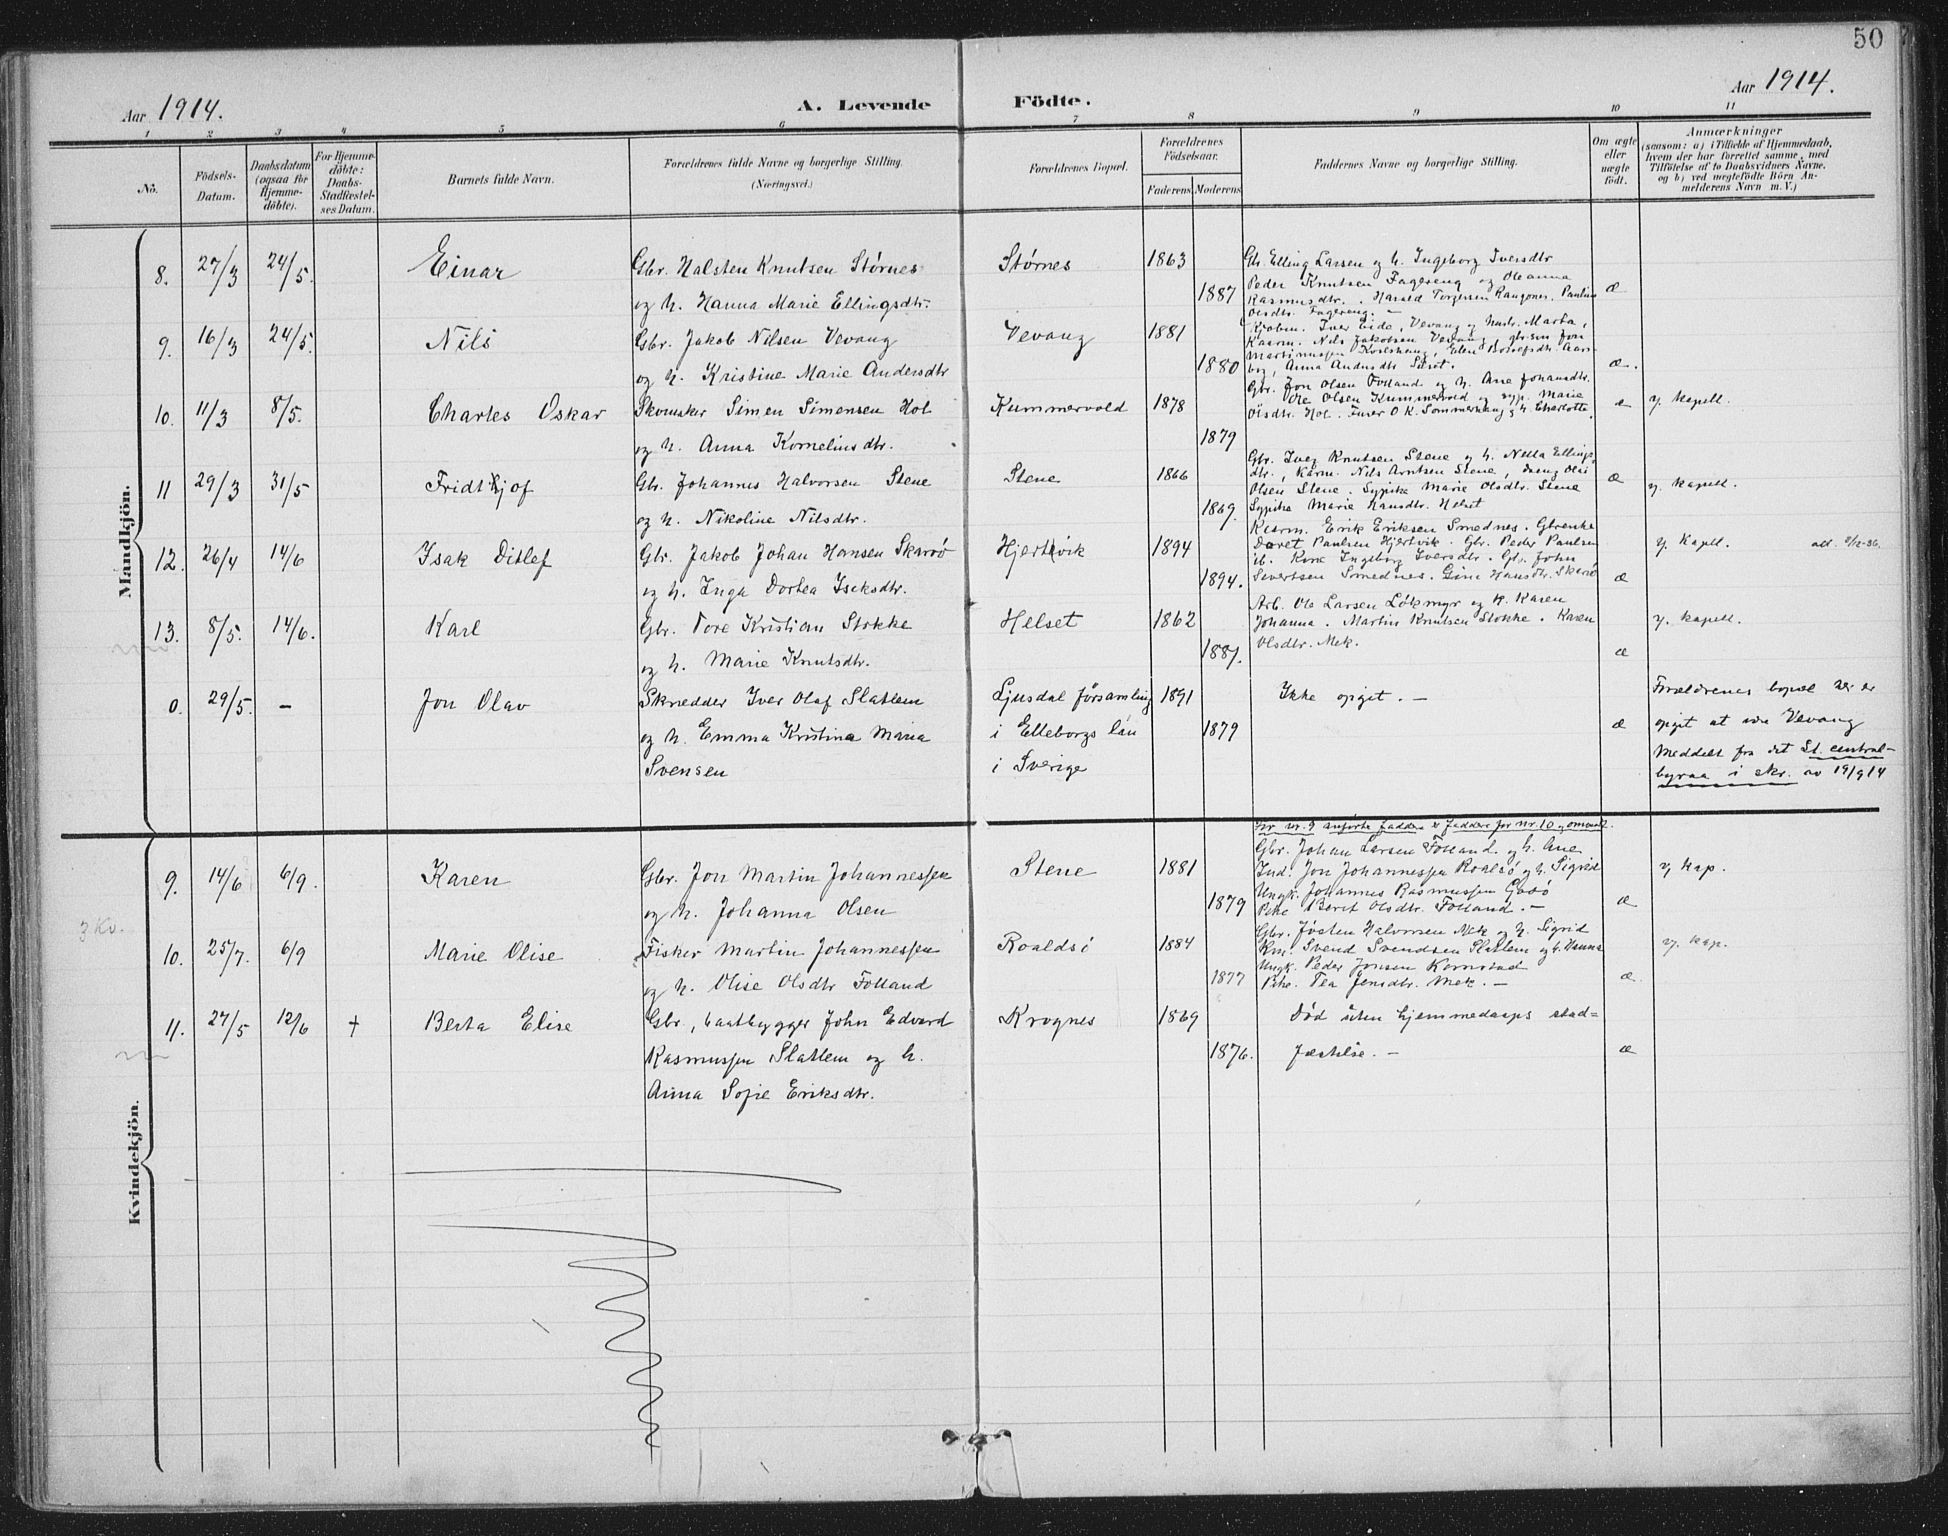 50
Aar 1914.
A. Levende Födte.
Aar 1914.
1 2 3 4 5 6 7 8 9 10 11
No.
Födsels-
Datum.
Daabsdatum
(ogsaa for
Hjemme-
döbte).
For Hjemme-
döbte:
Daabs-
Stadfæstel-
ses Datum.
Barnets fulde Navn.
Forældrenes fulde Navne og borgerlige Stilling.
(Næringsvei.)
Forældrenes Bopæl.
Forældrenes
Födselsaar.
Faderens. Moderens.
Faddernes Navne og borgerlige Stilling.
Om ægte
eller
uægte
födt.
Anmærkninger
(saasom: a) i Tilfælde af Hjemmedaab,
hvem der har forrettet samme, med
Tilföielse af to Daabsvidners Navne,
og b) ved uægtefödte Börn An-
melderens Navn m. V.)
Mandkjön.
8. 27/3 24/5. Einar
Gbr. Halsten Knutsen Størnes
og h. Hanna Marie Ellingsdtr.
Størnes 1863
1887
Gbr. Elling Larsen og h. Ingeborg Iversdtr
Peder Knutsen Fagereng og Oleanna
Rasmusdtr. . Harald Torgersen
Olsdtr. Fagereng. –
æ
9. 16/3 24/5. Nils
Gbr. Jakob Nilsen Vevang
og h. Kristine Marie Andersdtr
Vevang 1881
1880
Kjøbm. Iver Eide, Vevang og hustr. Marta,
Nils Jakobsen Vevang,
æ.
10. 11/3 8/5. Charles Oskar
Skomaker Simen Simensen Hol
og h. Anna Kornelius dtr.
Kummervold 1878
1879
Gbr. Jon Olsen Folland og h. Ane Johansdtr.
Ole Olsen Kummervold og Marie
Olsdtr. Hol.
æ
y. kapell.
11 29/3 31/5 Fridtjof
Gbr. Johannes Halvorsen Stene
og h. Nikoline Nilsdtr.
Stene 1866
1869.
Gbr. Iver Knutsen Stene og h. Nella Ellings
dtr., Nils Arntsen Stene,
Olsen Stene. Sypike Marie Olsdtr. Stene
Sypike Marie Hansdtr. Helset
æ
y. kapell.
12. 26/4 14/6 Isak Ditlef
Gbr. Jakob Johan Hansen Skarsø
og h. Inga Dortea Isaksdtr.
Hjertvik 1894
1894.
Erik Eriksen Smednes. Gbrenke
Paulsen Hjertvik. Gbr. Peder Paulsen
ib. Kone Ingeborg Iversdtr. Gbr. John
Sivertsen Smednes. Gine Hansdtr. Skarsø
æ
y. kapell.
13. 8/5. 14/6. Karl
Gbr. Tore Kristian Stokke
og h. Marie Knutsdtr.
Helset 1862
1881.
Arb. Ole Larsen Løkmyr og h. Karen
Johanna . Martin Knutsen Stokke . Karen
Olsdtr. Mek.
æ
y. kapell.
0. 29/5. – Jon Olav
Skrædder Iver Olaf Slatlem
og h. Emma Kristina Maria
Svensen
Ljusdal församling
i Elleborgs län
i Sverige
1891
1879
Ikke opgit. –
æ
Forældrenes bopæl her er
opgit at være Vevang
Meddelt fra det St. central-
byraa i skr. av 19/9 14
Kvindekjön.
9. 14/6 6/9. Karen
Gbr. Jon Martin Johannessen
og h. Johanna Olsen
Stene 1881
1879
For nr. 9 anførte faddere er faddere for nr. 10 og omvendt.
Gbr. Johan Larsen Folland og h. Ane
Ind. Jon Johannessen Roalsø og h. Sigrid
Ungk. Johannes Rasmussen
Pike Berit Olsdtr. Folland. –
æ
y kap.
3 Kv.
10. 25/7. 6/9 Marie Olise
Fisker Martin Johannessen
og h. Olise Olsdtr Folland
Roaldsø 1884
1877
Gbr. Jøsten Halvorsen Mek og h. Sigrid
Svend Svendsen Slatlem og h. Hanna
Ungk. Peder Jonsen Kornstad
Pike. Tea Jensdtr. Mek. –
æ.
y. kap.
11. 27/5 12/6 † Berta Elise
Gbr., baatbygger John Edvard
Rasmussen Slatlem og h.
Anna Sofie Eriksdtr.
Krognes 1869
1876.
Død uten hjemmedaaps stad=
fæstelse. –
æ